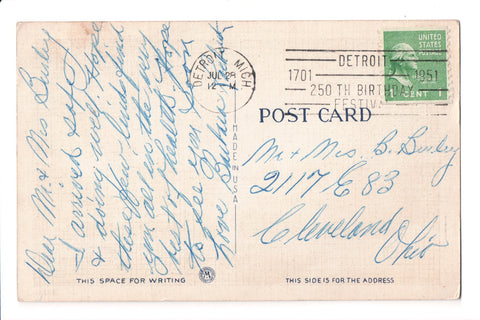 Dear Mr. & Mrs Burley
I arrived safe
& doing well. Hope
these few lines find
you all in the very
best of health. Hope
to see you soon
Love
DETROIT, MICH
JUL 28
12 M
DETROIT
1701 1951
250 TH BIRTHDAY
FESTIV
UNITED STATES POSTAGE
1 CENT 1
POST CARD
MADE IN U.S.A.
Mr & Mrs. B. Burley
2117 E 83
Cleveland
Ohio
THIS SPACE FOR WRITING
THIS SIDE IS FOR THE ADDRESS